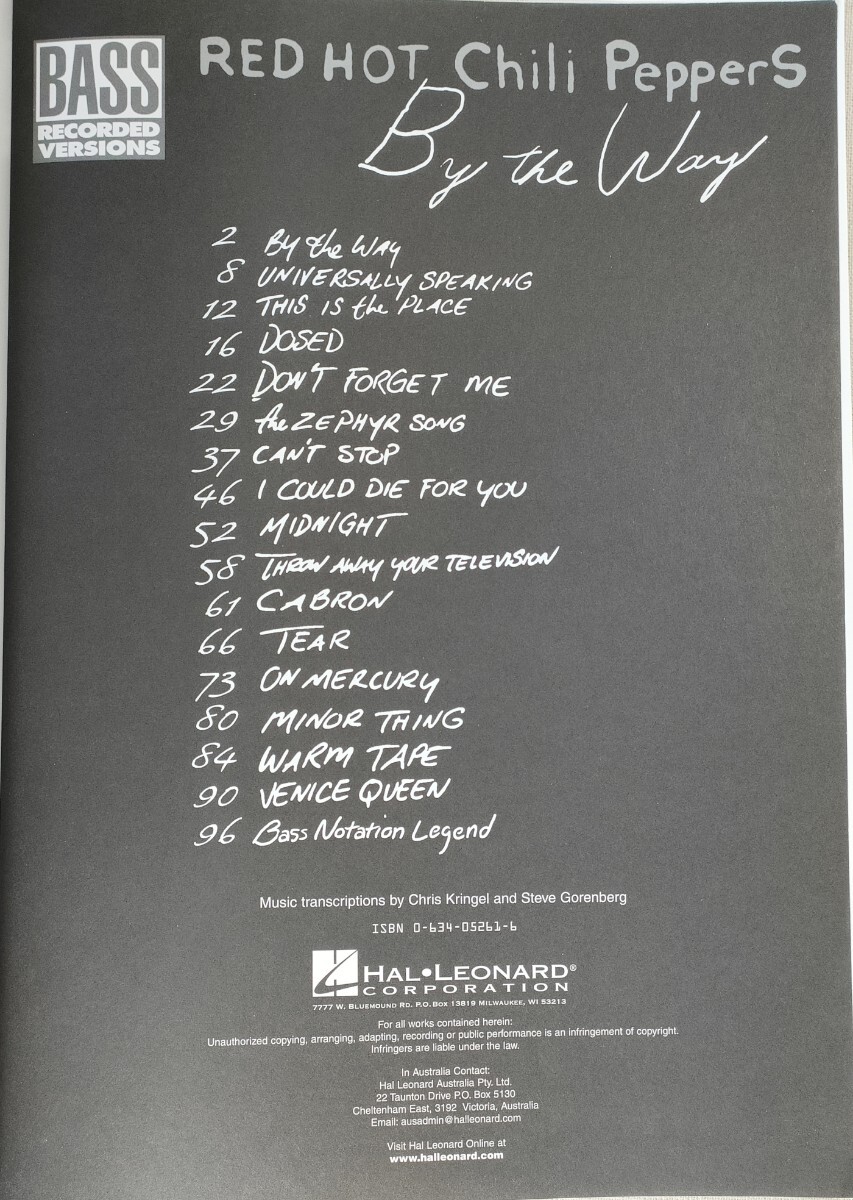 BASS
RECORDED
VERSIONS
RED HOT Chili PepperS
By the Way
2 By the WAY
8 UNIVERSALLY SPEAKING
12 THIS IS the PLACE
16 DOSED
22 DON'T FORGET ME
29 the ZEPHYR SONG
37 CAN'T STOP
46 I COULD DIE FOR YOU
52 MIDNIGHT
58 THROW AWAY YOUR TELEVISION
61 CABRON
66 TEAR
73 ON MERCURY
80 MINOR THING
84 WARM TAPE
90 VENICE QUEEN
96 Bass Notation Legend
Music transcriptions by Chris Kringel and Steve Gorenberg
ISBN 0-634-05261-6
HAL•LEONARD®
CORPORATION
7777 W. BLUEMOUND RD. P.O. BOX 13819 MILWAUKEE, WI 53213
For all works contained herein:
Unauthorized copying, arranging, adapting, recording or public performance is an infringement of copyright.
Infringers are liable under the law.
In Australia Contact:
Hal Leonard Australia Pty. Ltd.
22 Taunton Drive P.O. Box 5130
Cheltenham East, 3192 Victoria, Australia
Email: ausadmin@halleonard.com
Visit Hal Leonard Online at
www.halleonard.com